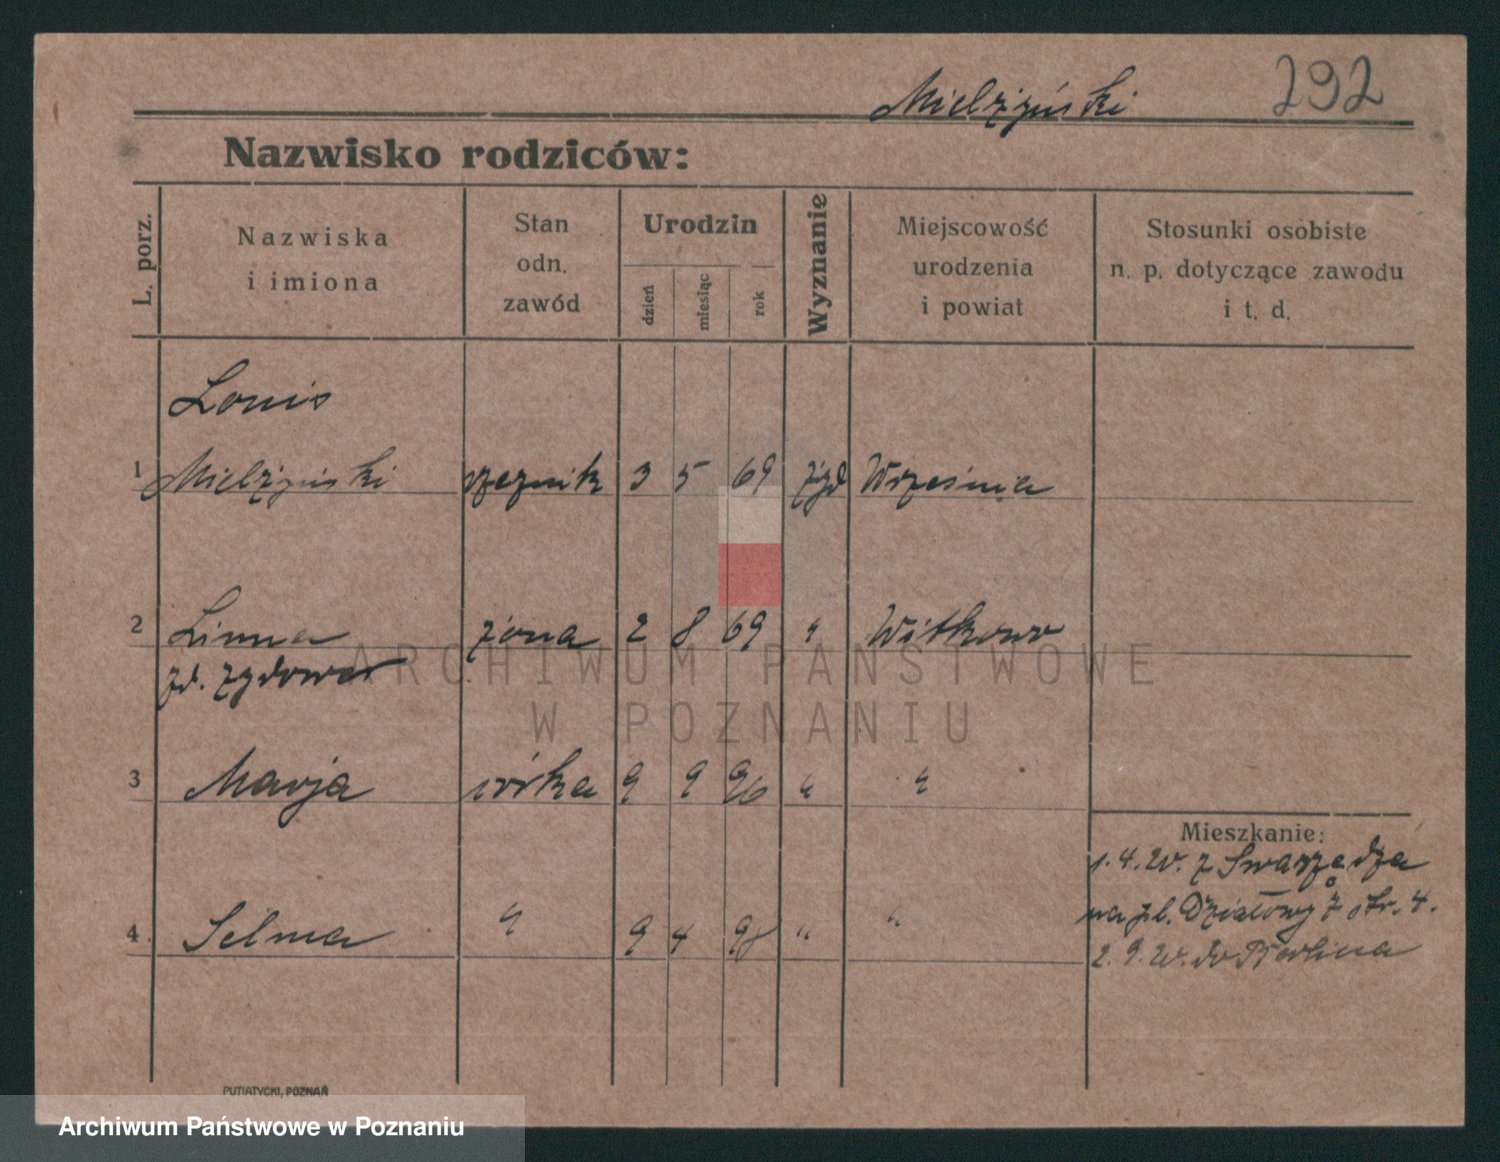 Mielżyński 292
Nazwisko rodziców:
L. porz.
Nazwiska
i imiona
Stan
odn.
zawód
Urodzin
dzień
miesiąc
rok
Wyznanie
Miejscowość
urodzenia
i powiat
Stosunki osobiste
n. p. dotyczące zawodu
i t. d.
Louis
1 Mielżyński rzeźnik 3 5 69 żyd Września
2 Linna żona 2 8 69 " Witkowo
3 Marja córka 9 9 96 " "
4 Selma " 9 4 98 " "
Mieszkanie:
1. 4. 20. z Swarzędza
na pl. Działowy 7 ptr. 4.
2. 9. 20. do Berlina
PUTIATYCKI, POZNAŃ
ARCHIWUM PAŃSTWOWE
W POZNANIU
Archiwum Państwowe w Poznaniu